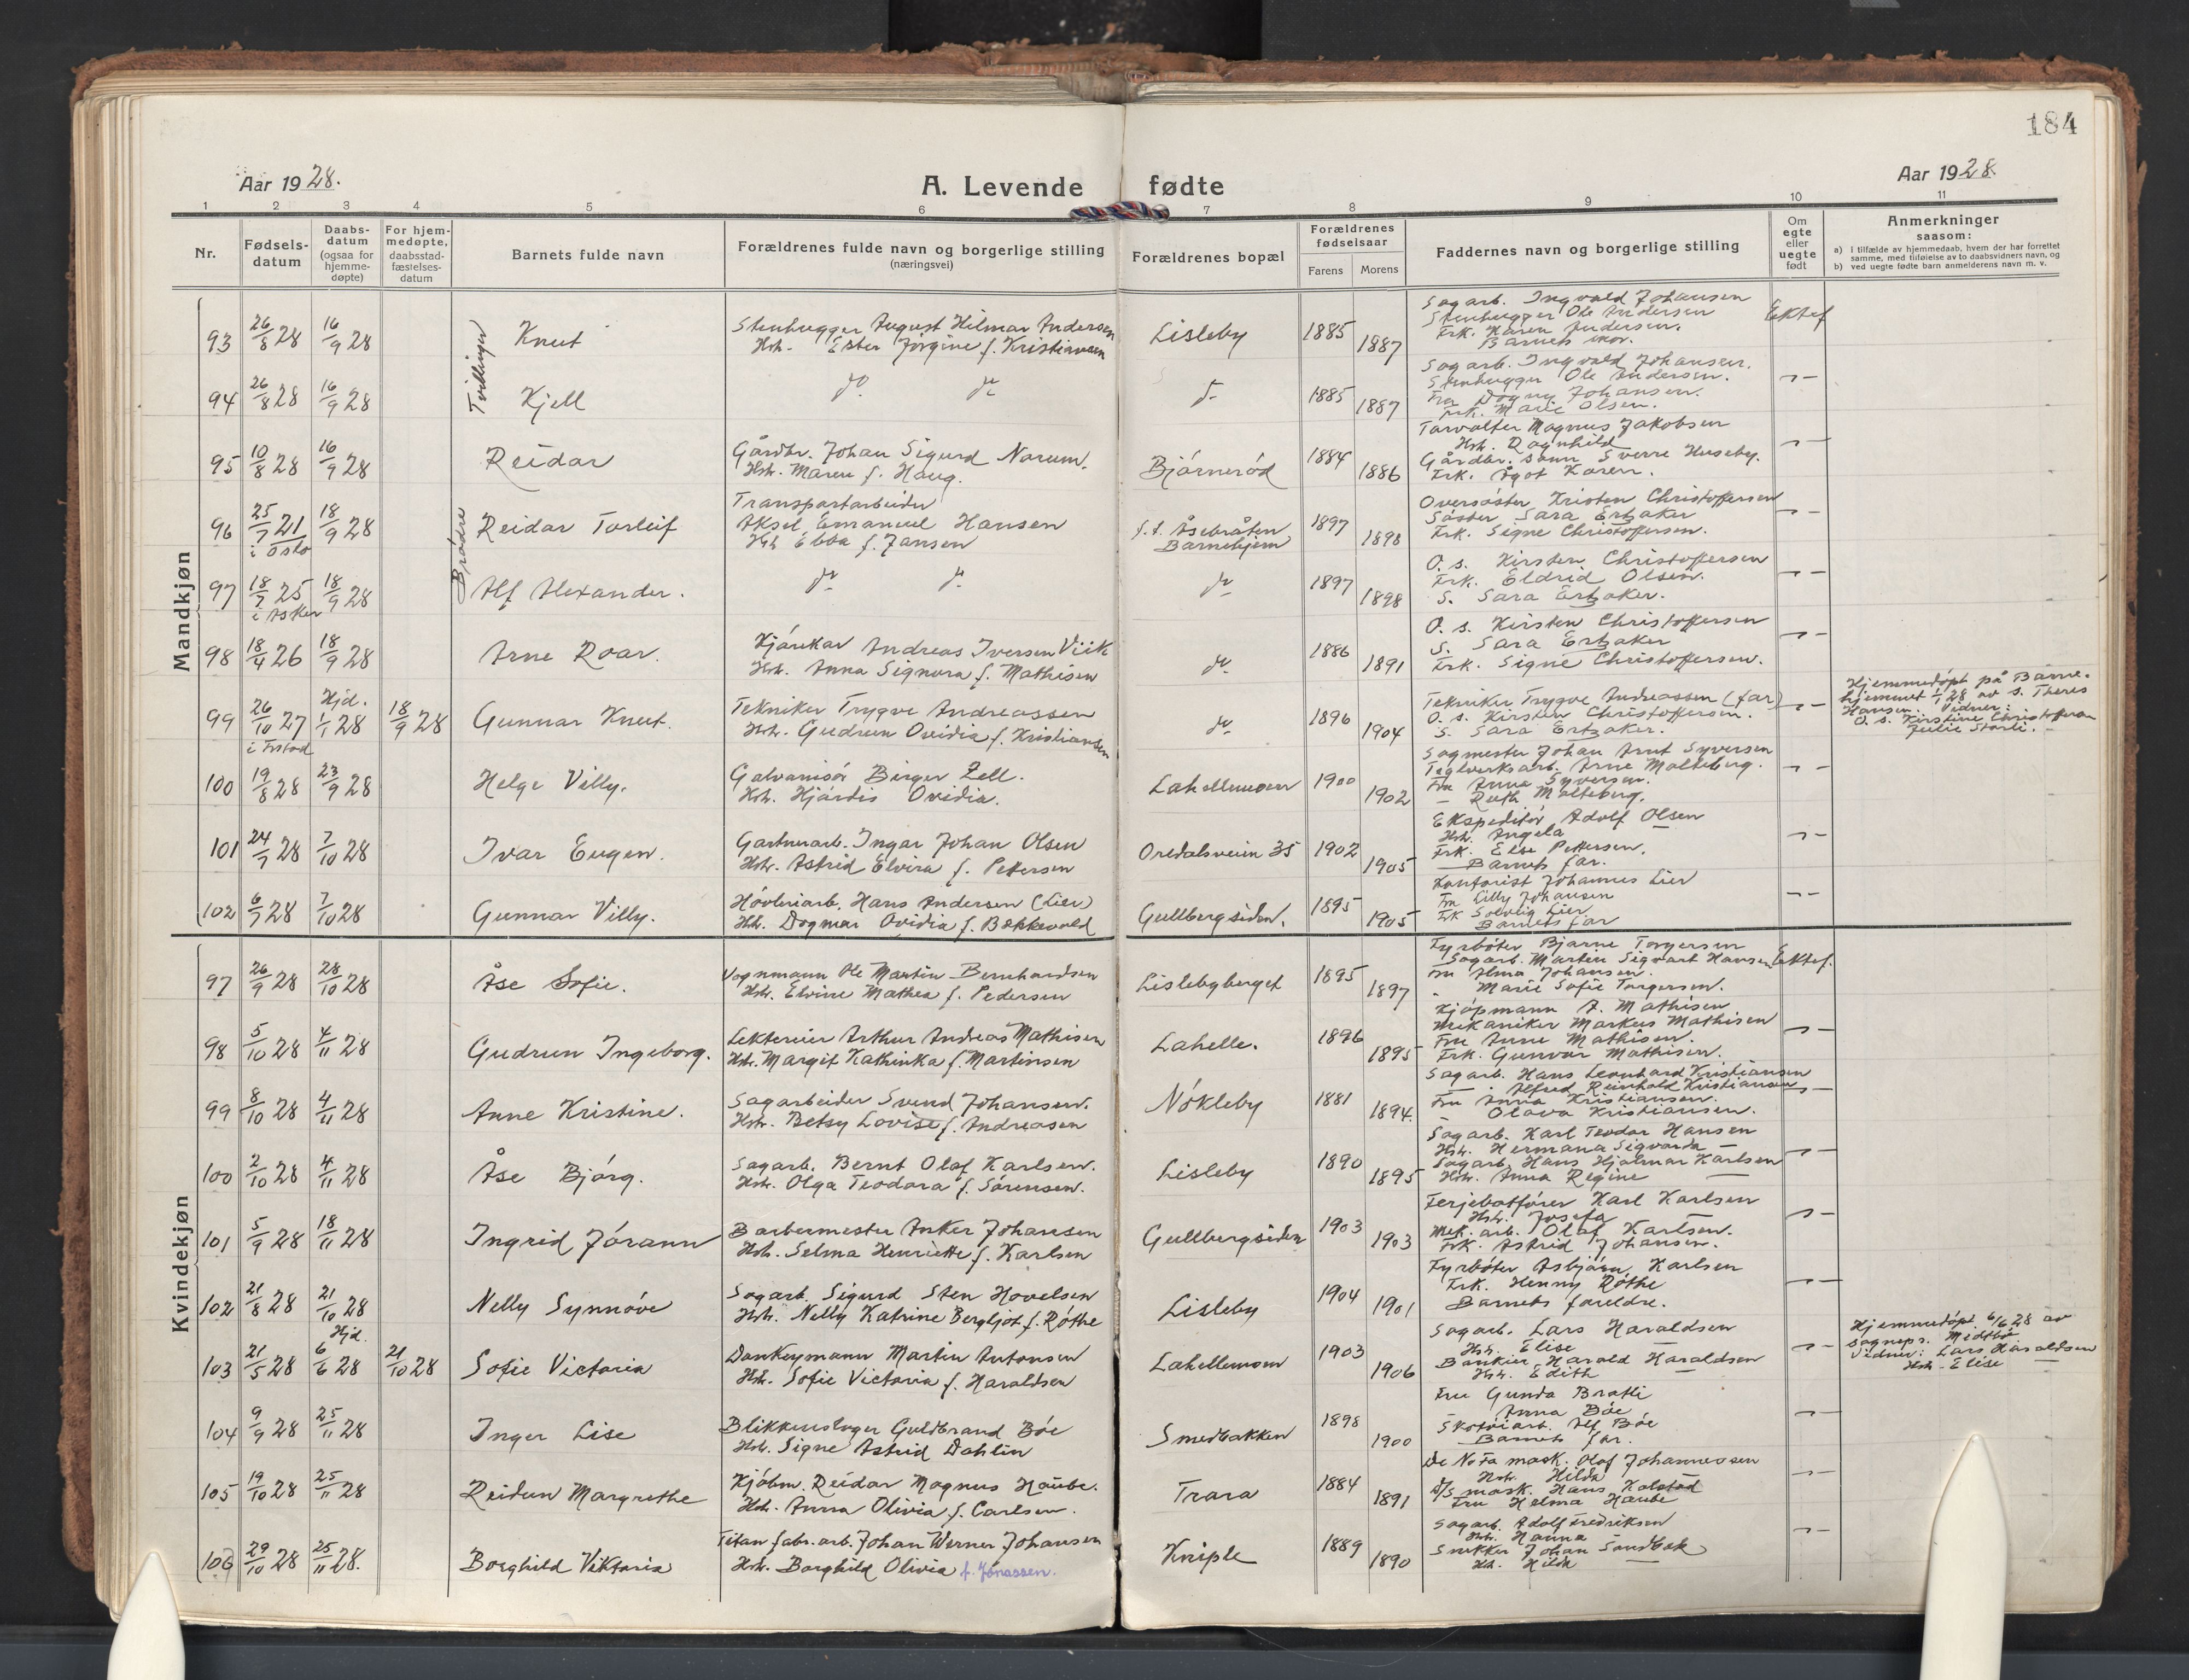 184
Aar 1928.
A. Levende fødte
Aar 1928.
1 2 3 4 5 6 7 8 9 10 11
Nr.
Fødsels-
datum
Daabs-
datum
(ogsaa for
hjemme-
døpte)
For hjem-
medøpte,
daabsstad-
fæstelses-
datum
Barnets fulde navn
Forældrenes fulde navn og borgerlige stilling
(næringsvei)
Forældrenes bopæl
Forældrenes
fødselsaar
Farens Morens
Faddernes navn og borgerlige stilling
Om
egte
eller
uegte
født
Anmerkninger
saasom:
a) I tilfælde av hjemmedaab, hvem der har forrettet
samme, med tilføielse av to daabsvidners navn, og
b) ved uegte fødte barn anmelderens navn m. v.
Mandkjøn
Tvillinger
93 26/8 28 16/9 28 Knut
Stenhugger August Hilmar Andersen
Hst. Ester Jørgine f. Kristiansen
Lisleby 1885 1887
Sagarb. Ingvald Johansen
Stenhugger Ole Andersen
Frk. Karen Andersen.
Barnets mor.
Ektef
94 26/8 28 16/9 28 Kjell
do. do
do 1885 1887
Sagarb. Ingvald Johansen.
Stenhugger Ole Andersen.
Fru Dagny Johansen.
Frk. Marie Olsen.
95 10/8 28 16/9 28 Reidar
Gårdbr. Johan Sigurd Narum.
Hst. Maren f. Haug.
Bjørnerød 1884 1886
Torvalter Magnus Jakobsen
Hst. Ragnhild
Gårdbr. sønn Sverre Huseby.
Frk. Ågot Karen.
Brødre
96 25/7 21 18/9 28 Reidar Torleif
i Oslo
Transportarbeider
Aksel Emanuel Hansen
Hst Ebba f. Jansen
f.t. Åsebråten
Barnehjem
1897 1898
Oversøster Kristen Christoffersen
Søster Sara Ertzaker
Frk. Signe Christoffersen.
97 18/7 25 18/9 28 Alf Alexander.
i Asker
do do
do 1897 1898
O. s. Kirsten Christoffersen
Frk. Eldrid Olsen.
S. Sara Ertzaker.
98 18/4 26 18/9 28 Arne Roar.
Kjørekar Andreas Iversen Viik
Hst. Anna Signora f. Mathisen
do 1886 1891
O. s. Kirsten Christoffersen
S. Sara Ertzaker
Frk. Signe Christoffersen.
99 26/10 27 Hjd. 1/1 28 18/9 28 Gunnar Knut.
i Frstad
Tekniker Trygve Andreassen
Hst. Gudrun Ovidia f. Kristiansen
do 1896 1904
Tekniker Trygve Andreassen (far)
O. s. Kirsten Christoffersen.
S. Sara Ertzaker.
Hjemmedøpt på Barne-
hjemmet 1/1 28 av s. Theres
Hansen. Vidner:
O. s. Kirstine Christoffersen
Julie Storli.
100 19/8 28 23/9 28 Helge Villy.
Galvanisør Birger Zell.
Hst. Hjørdis Ovidia.
Lahellemoen 1900 1902
Sagmester Johan Arnt Syversen
Teglverksarb. Arne Malteberg.
Fru Anna Syversen.
— Ruth Malteberg.
101 24/7 28 7/10 28 Ivar Eugen.
Gartnerarb. Ingar Johan Olsen
Hst. Astrid Elvira f. Pettersen
Oredalsveien 35 1902 1905
Ekspeditør Adolf Olsen
Hst. Angela
Frk. Else Pettersen.
Barnets far.
102 6/7 28 7/10 28 Gunnar Villy.
Høvleriarb. Hans Andersen (Lier)
Hst. Dagmar Ovidia f. Bækkevold
Gullbergsiden. 1895 1905
Kontorist Johannes Lier
Fru Lilly Johansen
Frk Solveig Lier
Barnets far
Kvindekjøn
97 26/9 28 28/10 28 Åse Sofie.
Vognmann Ole Martin Bernhardsen
Hst. Elvine Mathea f. Pedersen
Lislebyberget 1895 1897
Fyrbøter Bjarne Torgersen
Sagarb. Martin Sigvart Hansen
Fru Alma Johansen.
Marie Sofie Torgersen.
Ektef.
98 5/10 28 4/11 28 Gudrun Ingeborg.
Lektereier Arthur Andreas Mathisen
Hst. Margit Kathinka f. Martinsen
Lahelle. 1896 1895
Kjøpmann A. Mathisen
Mekaniker Markus Mathisen
Fru Anne Mathisen.
Frk. Gunvor Mathisen.
99 8/10 28 4/11 28 Anne Kristine.
Sagarbeider Svend Johansen.
Hst. Betsy Lovise f. Andreasen
Nøkleby 1881 1894.
Sagarb. Hans Leonhard Kristiansen
— Alfred Reinhold Kristiansen
Fru Anna Kristiansen.
— Olava Kristiansen.
100 2/10 28 4/11 28 Åse Bjørg.
Sagarb. Bernt Olaf Karlsen.
Hst. Olga Teodora f. Sørensen.
Lisleby 1890 1895
Sagarb. Karl Teodor Hansen
Hst. Hermana Sigvarda —
Sagarb. Hans Hjalmar Karlsen
Hst. Anna Regine —
101 5/9 28 18/11 28 Ingrid Jørann
Barbermester Anker Johansen
Hst. Selma Henriette f. Karlsen
Gullbergsiden 1903 1903
Ferjebåtfører Karl Karlsen
Hst. Josefa —
Mek. arb. Olaf Karlsen.
Frk. Astrid Johansen.
102 21/8 28 21/10 28 Nelly Synnøve
Sagarb. Sigurd Sten Hovelsen
Hst. Nelly Katrine Bergljot f. Røthe
Lisleby 1904 1901
Fyrbøter Asbjørn Karlsen
Frk. Henny Røthe
Barnets foreldre.
103 21/5 28 Hjd. 6/6 28 21/10 28 Sofie Victoria
Donkeymann Martin Antonsen
Hst. Sofie Victoria f. Haraldsen
Lahellemoen 1903 1906
Sagarb. Lars Haraldsen
Hst. Elise —
Bankier Harald Haraldsen
Hst. Edith —
Hjemmedøpt 6/6 28 av
sognepr. Medbøe
Vidner: Lars Haraldsen
Hst. Elise —
104 9/9 28 25/11 28 Inger Lise
Blikkenslager Guldbrand Bøe
Hst. Signe Astrid Dahlin
Smedbakken 1898 1900
Fru Gunda Bratli
— Anna Bøe
Skotøiarb. Alf Bøe
Barnets far.
105 19/10 28 25/11 28 Reidun Margrethe
Kjøbm. Reidar Magnus Haube.
Hst. Anna Olivia f. Carlsen.
Trara 1884 1891
De No Fa mask. Olaf Johannessen
Hst. Hilda
D/S mask. Hans Kolstad
Fru Helma Haube
106 29/10 28 25/11 28. Borghild Viktoria
Titan fabr. arb. Johan Werner Johansen
Hst. Borghild Olivia f. Jonassen.
Kniple 1889 1890
Sagarb. Adolf Fredriksen
Hst. Hanna
Snekker Johan Sandbæk
Hst. Hilda —